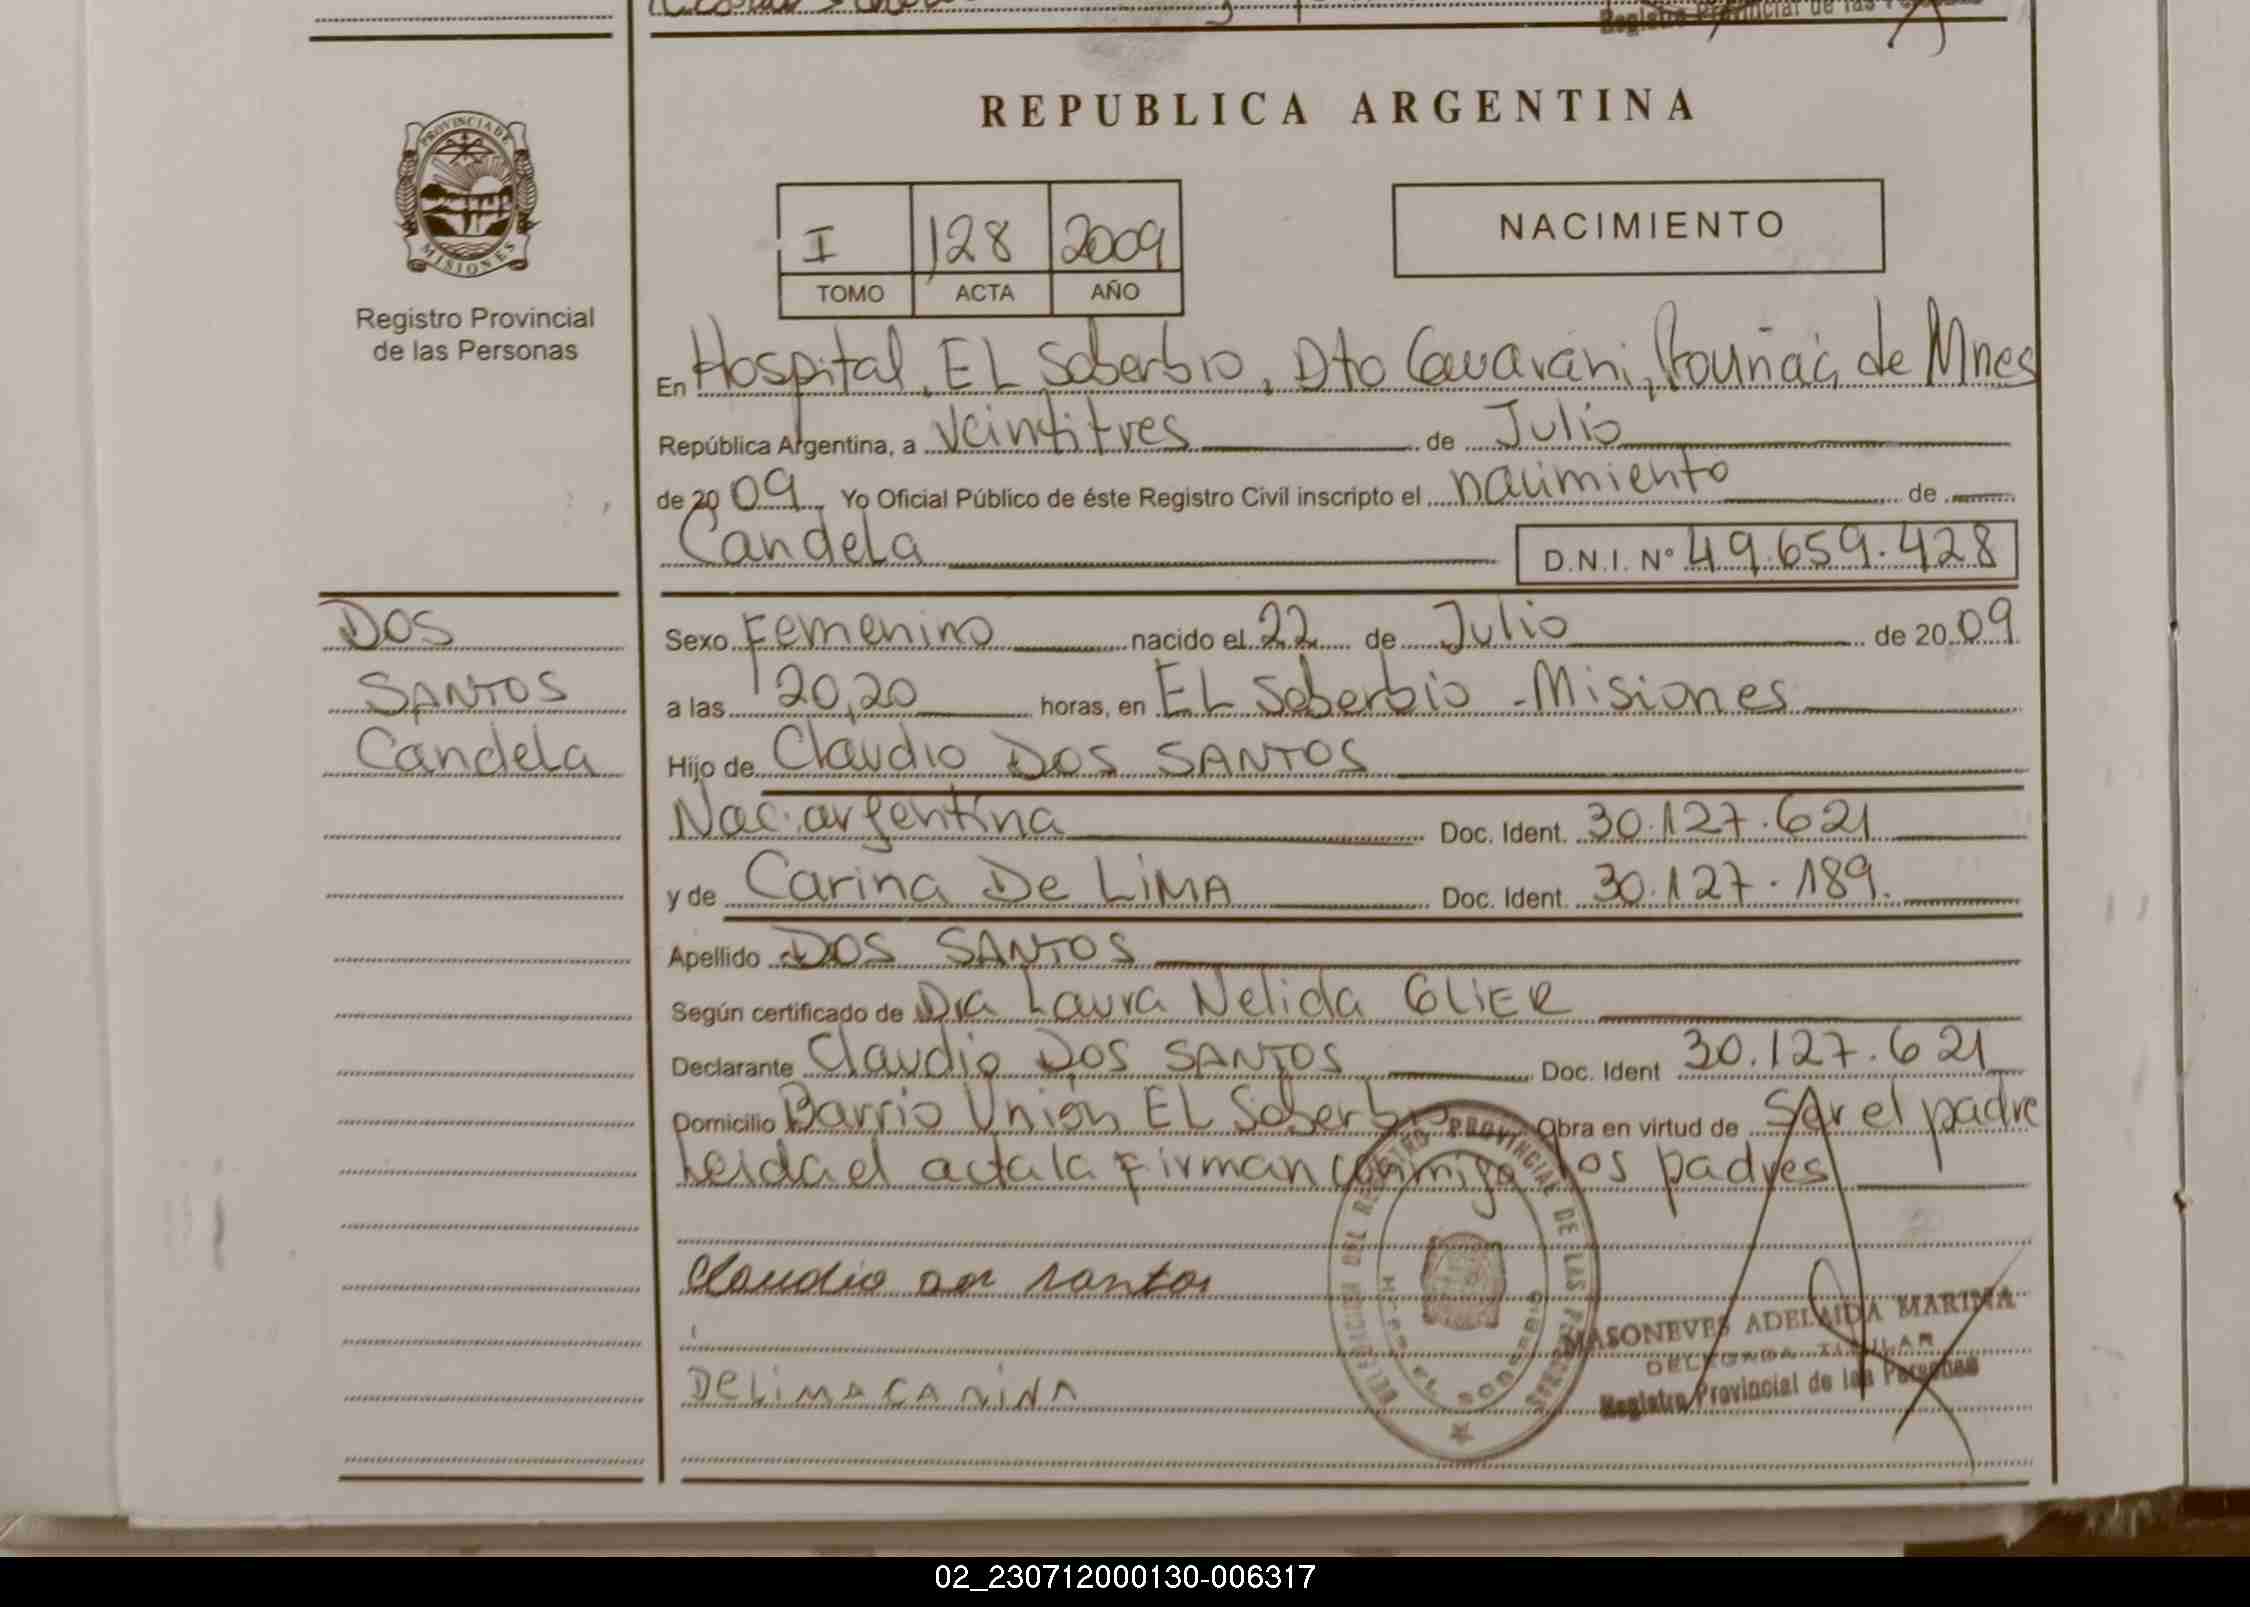 Registro Provincial de las Personas
REPUBLICA ARGENTINA
PROVINCIA DE
MISIONES
Registro Provincial
de las Personas
I 128 2009
TOMO ACTA AÑO
NACIMIENTO
En Hospital, EL Soberbio, Dto Guarani, de Mnes
República Argentina, a veintitres de Julio
de 2009 Yo Oficial Público de éste Registro Civil inscripto el nacimiento de
Candela D.N.I. Nº 49.659.428
DOS
SANTOS
Candela
Sexo Femenino nacido el 22 de Julio de 2009
a las 20,20 horas, en EL Soberbio - Misiones
Hijo de Claudio DOS SANTOS
Nac. argentina Doc. Ident. 30.127.621
y de Carina De LiMA Doc. Ident. 30.127.189.
Apellido DOS SANTOS
Según certificado de Dra Laura Nelida GLIER
Declarante Claudio DOS SANTOS Doc. Ident 30.127.621
Domicilio Barrio Unión EL Soberbio Obra en virtud de ser el padre
Leida el acta la firman conmigo los padres
DELEGACION DEL REGISTRO PROVINCIAL DE LAS PERSONAS
EL SOBERBIO
Claudio dos santos
MASONEVES ADELAIDA MARINA
DELEGADA TITULAR
Registro Provincial de las Personas
DeLiMA CARiNA
02_230712000130-006317